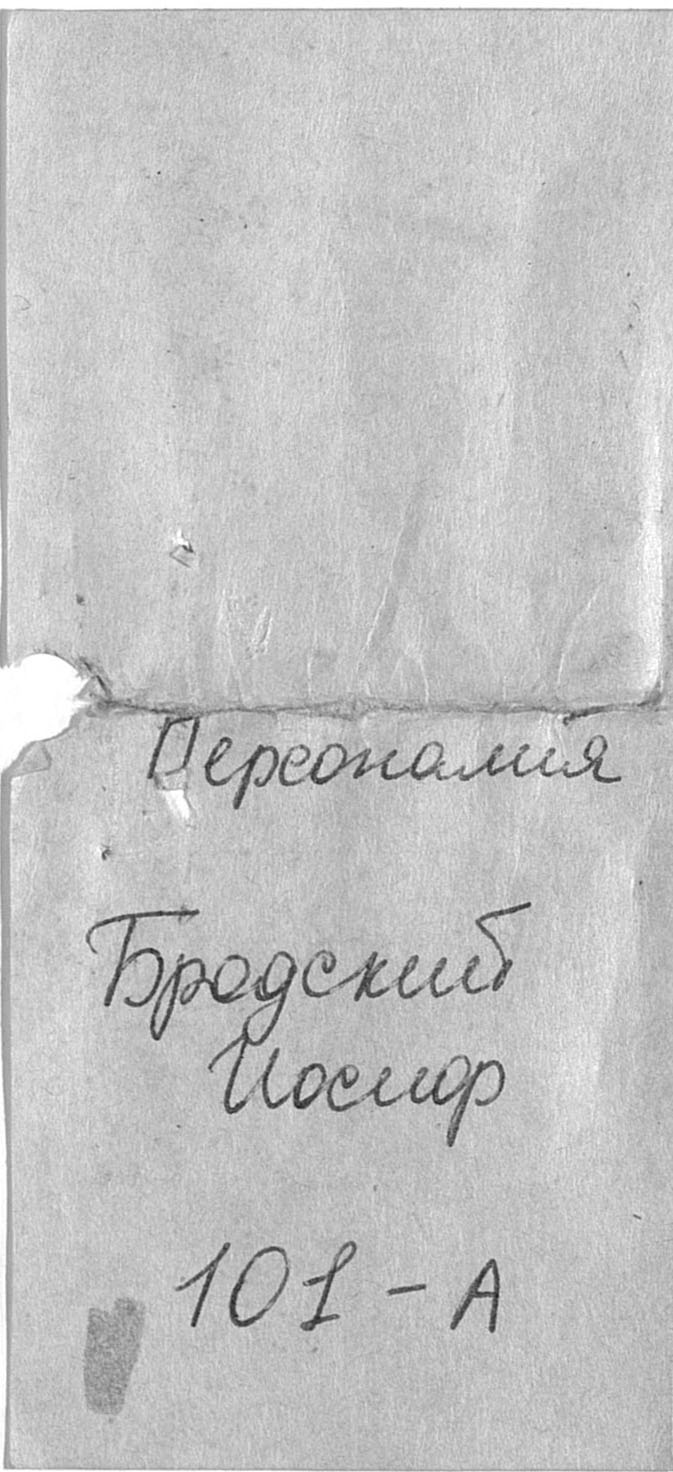 Персоналия
Бродский
Иосиф
101-А